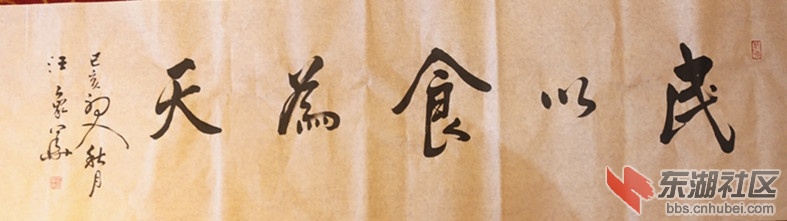 民以食為天
己亥初秋月
汪象華
东湖社区
bbs.cnhubei.com